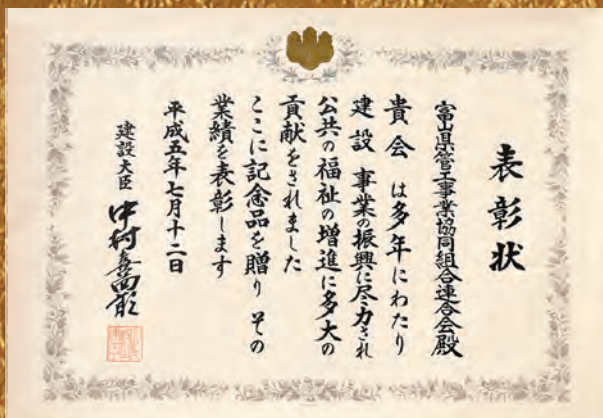 表彰状
富山県管工事業協同組合連合会殿
貴会は多年にわたり
建設事業の振興に尽力され
公共の福祉の増進に多大の
貢献をされました
ここに記念品を贈り その
業績を表彰します
平成五年七月十二日
建設大臣 中村喜四郎